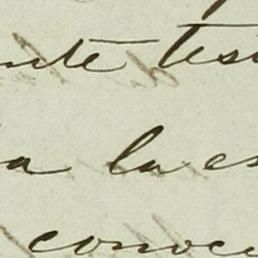 nte tes
a la es
conoci